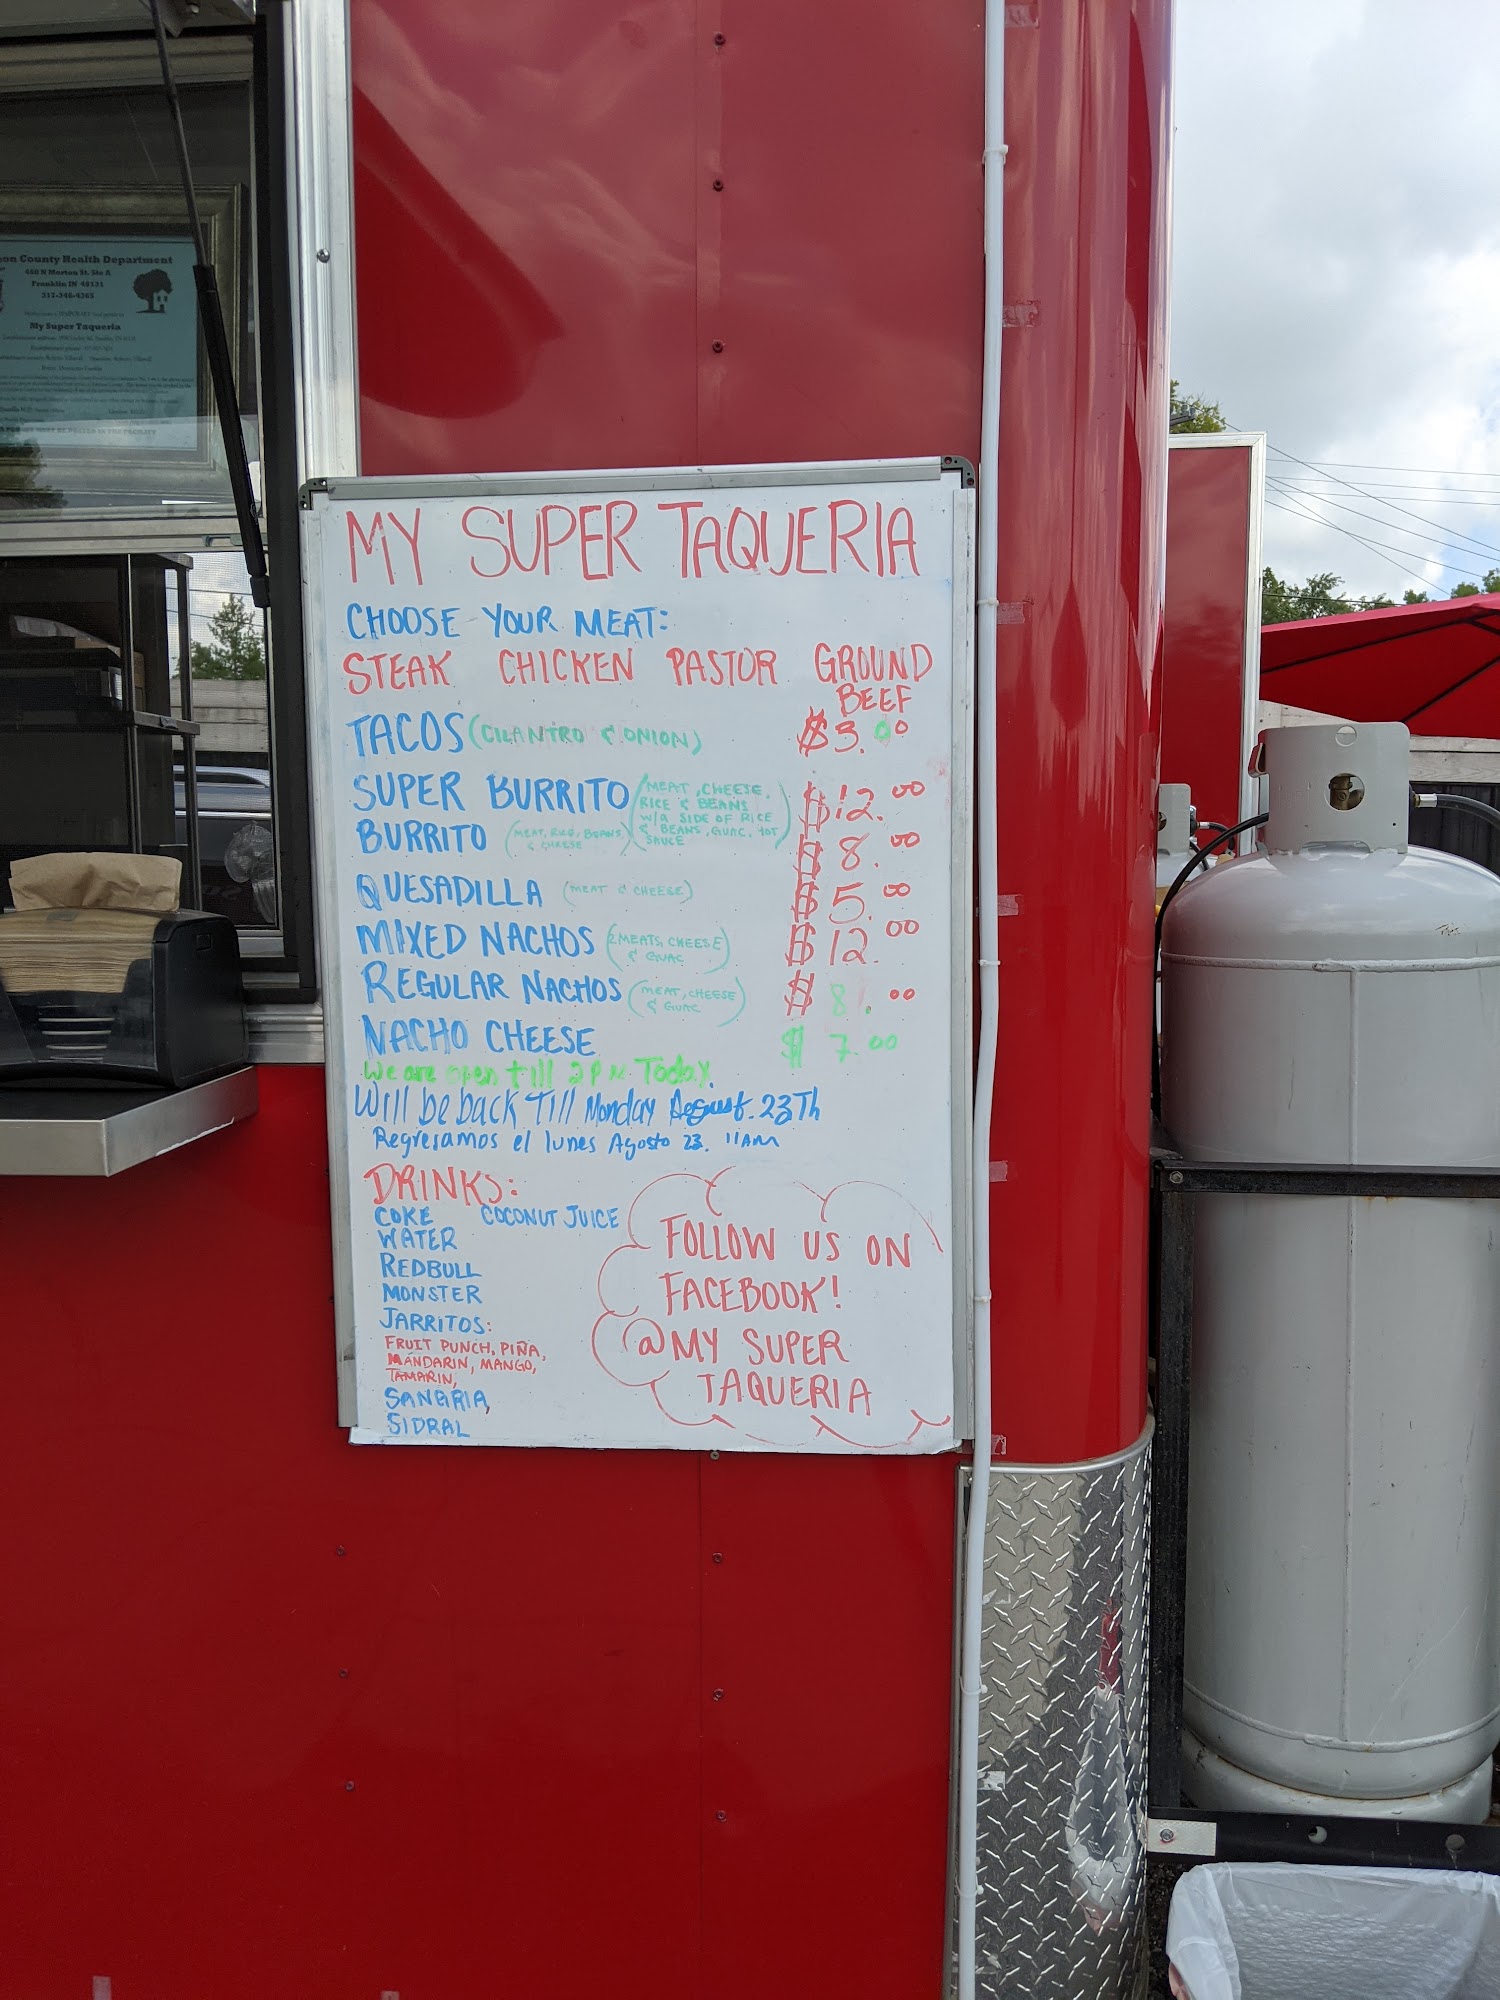 on County Health Department
460 N Morton St. Ste A
Franklin IN 46131
317-346-4365
My Super Taqueria
MY SUPER TAQUERIA
CHOOSE YOUR MEAT:
STEAK CHICKEN PASTOR GROUND
BEEF
TACOS (CILANTRO & ONION) $3.00
SUPER BURRITO (MEAT, CHEESE, $12.00
RICE & BEANS
W/A SIDE OF RICE
& BEANS, GUAC, HOT
SAUCE)
BURRITO (MEAT, RICE, BEANS $8.00
& CHEESE)
QUESADILLA (MEAT & CHEESE) $5.00
MIXED NACHOS (2 MEATS, CHEESE $12.00
& GUAC)
REGULAR NACHOS (MEAT, CHEESE $8.00
& GUAC)
NACHO CHEESE $7.00
We are open till 2PM Today.
Will be back Till Monday August. 23Th
Regresamos el lunes Agosto 23. 11AM
DRINKS:
COKE COCONUT JUICE
WATER
REDBULL
MONSTER
JARRITOS:
FRUIT PUNCH, PIÑA,
MANDARIN, MANGO,
TAMARIN,
SANGRIA,
SIDRAL
FOLLOW US ON
FACEBOOK!
@MY SUPER
TAQUERIA